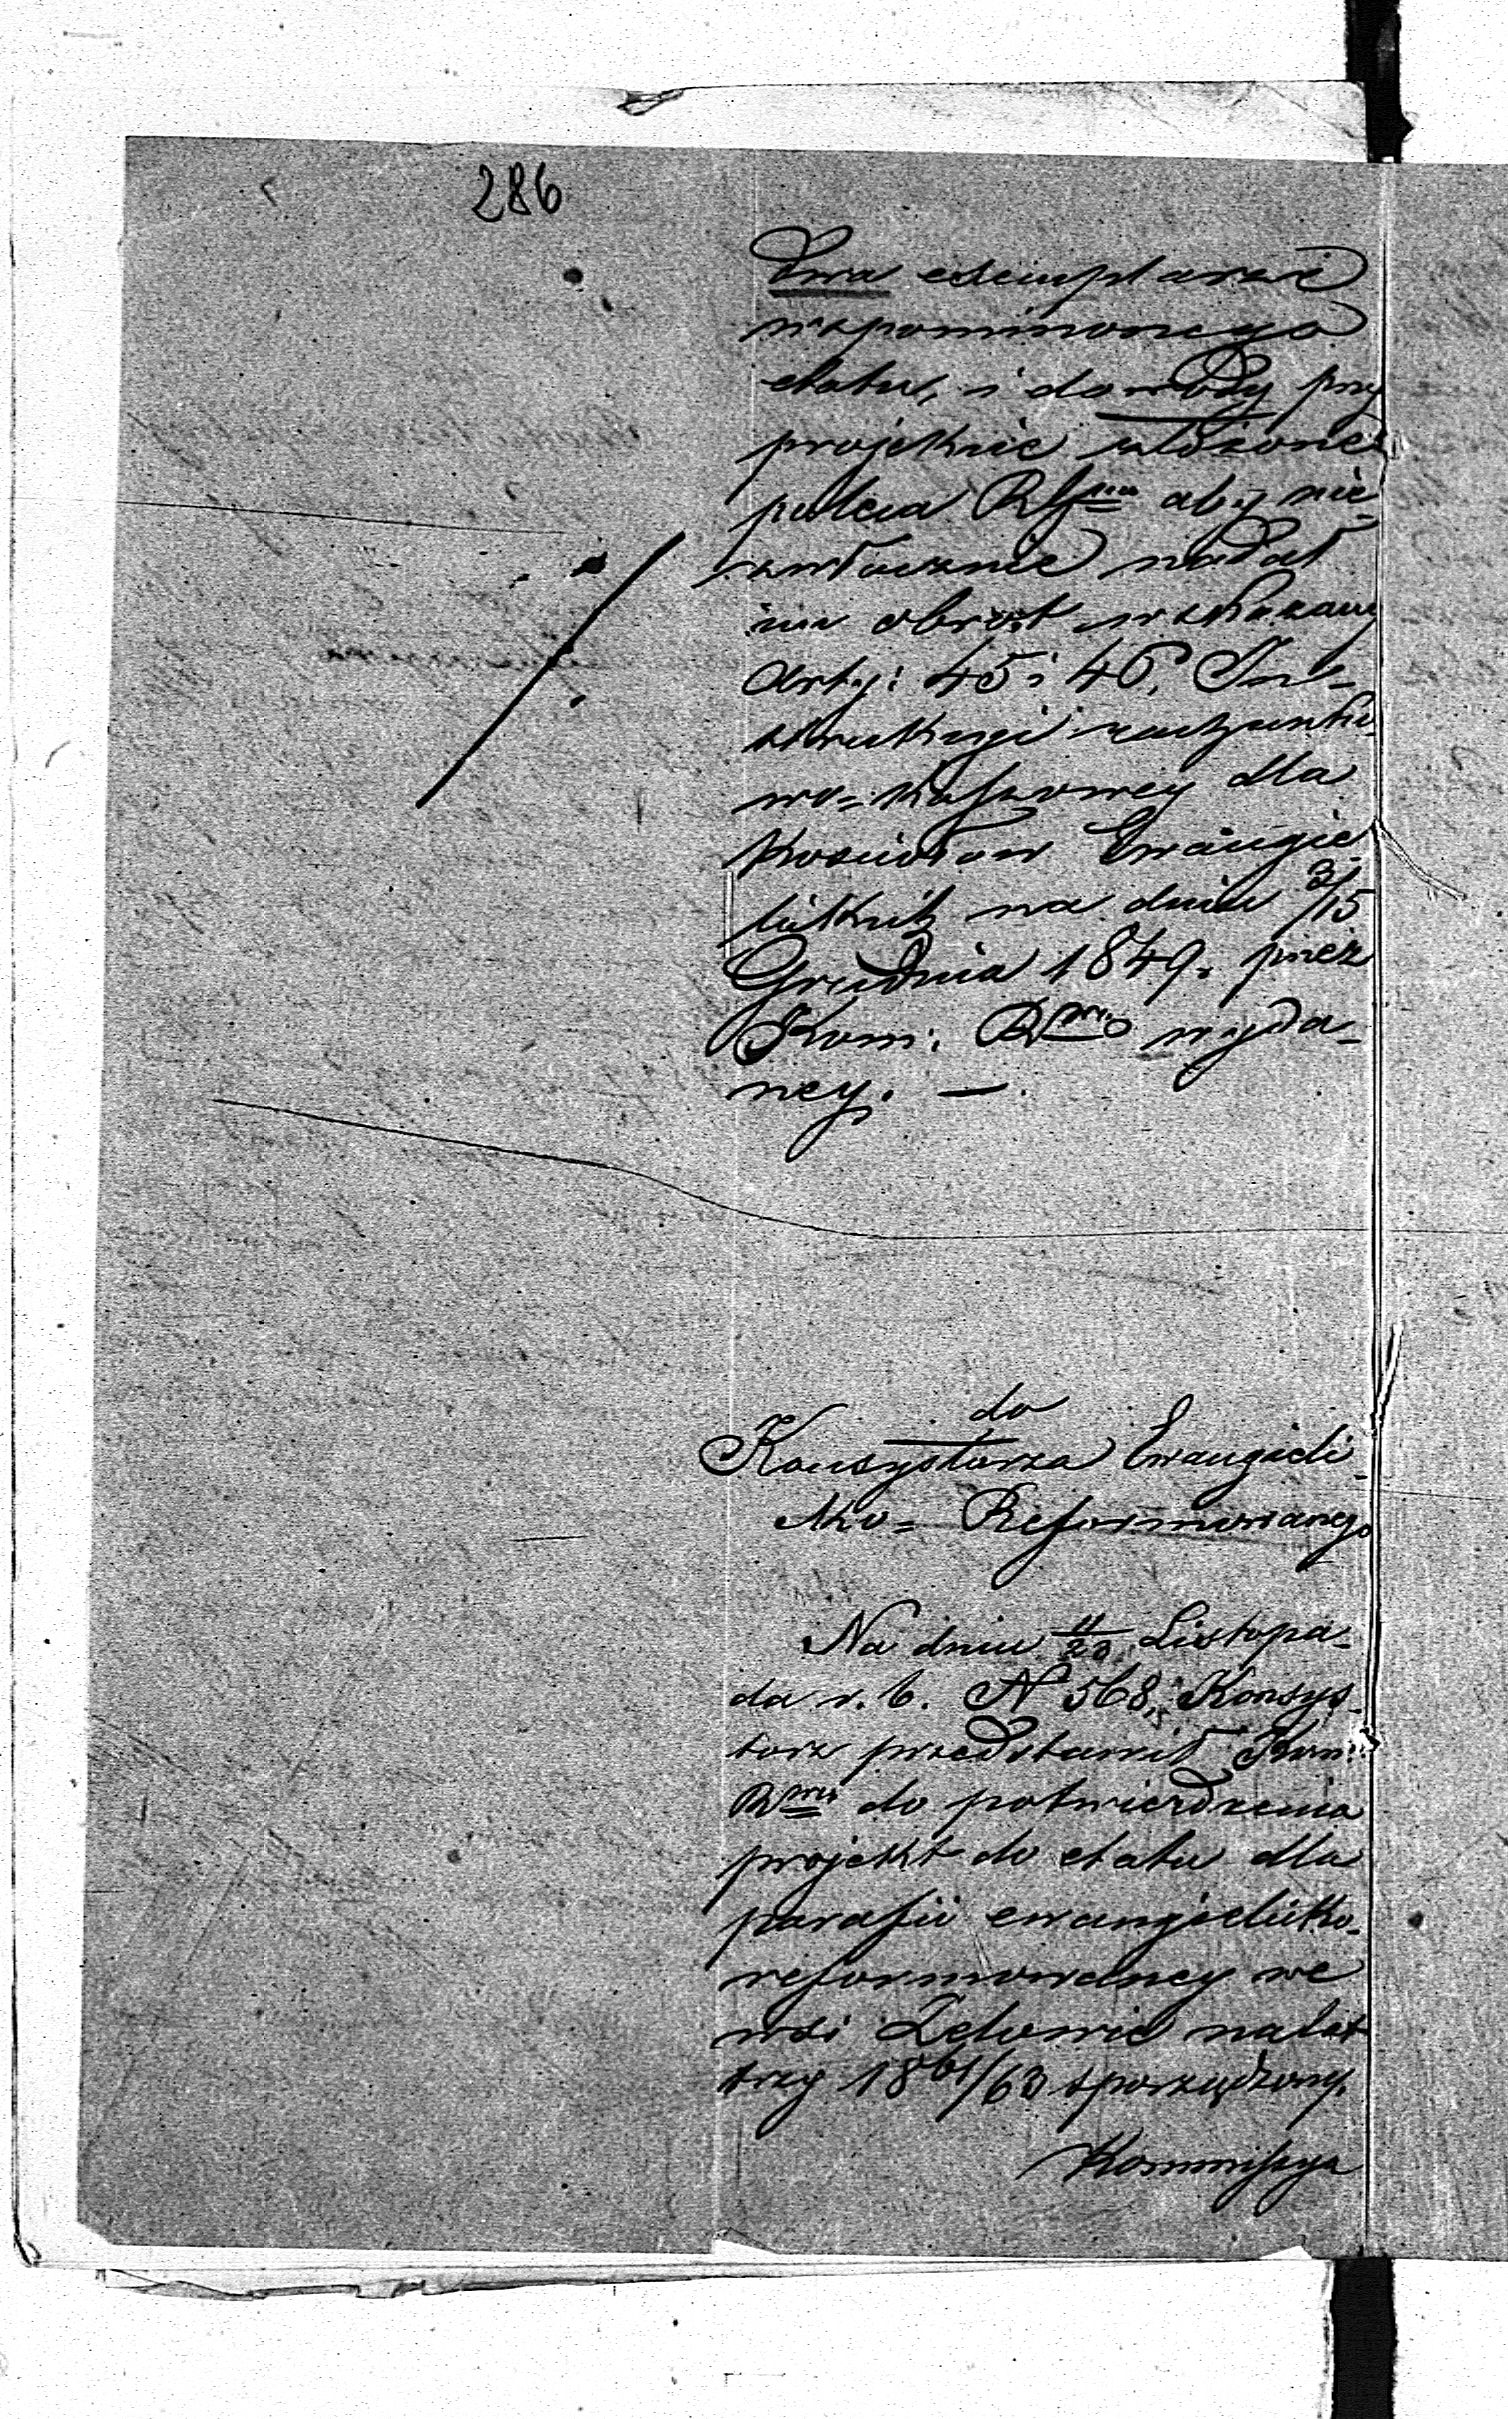 286
Dwa exemplarze
wspomnionego
etatu, i dowody przy
projekcie złożone
poleca R aby nie-
zwłocznie nadał
im obrót wskazany
Arty: 45 i 46, In-
strukcyi rachunko-
wo-kassowey dla
Kościołow Ewangie-
lickich na dniu 3/15
Grudnia 1849. przez
Kom: R wyda-
ney. —
do
Konsystorza Ewangieli-
cko= Reformowanego
Na dniu Listopa-
da r. b. N 568, Konsys-
torz przedstawił Kom:
R do potwierdzenia
projekt do etatu dla
parafii ewangielicko-
reformowaney we
wsi Zelowie na lat
trzy 1861/63 sporządzony.
Kommissya